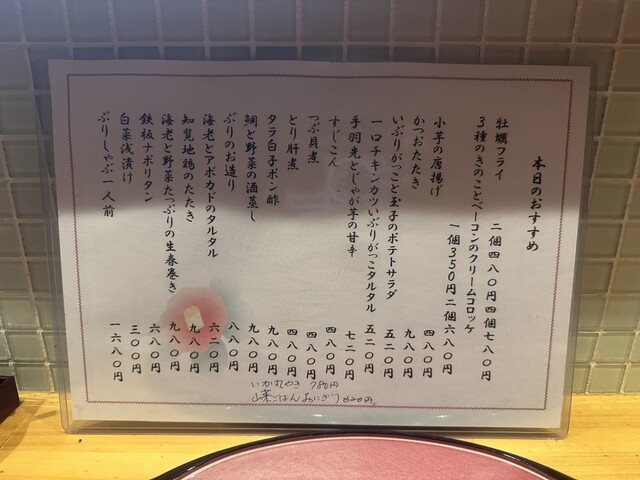 本日のおすすめ
牡蠣フライ
二個四八〇円四個七八〇円
3種のきのことベーコンのクリームコロッケ
一個350円二個六八〇円
小芋の唐揚げ 四八〇円
かつおたたき 九八〇円
いぶりがっこと玉子のポテトサラダ 五二〇円
一口チキンカツいぶりがっこタルタル 五二〇円
手羽先とじゃが芋の甘辛 七二〇円
すじこん 四八〇円
つぶ貝煮 四八〇円
とり肝煮 四八〇円
タラ白子ポン酢 九八〇円
鯛と野菜の酒蒸し 九八〇円
ぶりのお造り 八八〇円
海老とアボカドのタルタル 六二〇円
知覧地鶏のたたき 九八〇円
海老と野菜たっぷりの生春巻き 九八〇円
鉄板ナポリタン 六八〇円
白菜浅漬け 三〇〇円
ぶりしゃぶ一人前 一六八〇円
いか丸やき 780円
山菜ごはんおにぎり